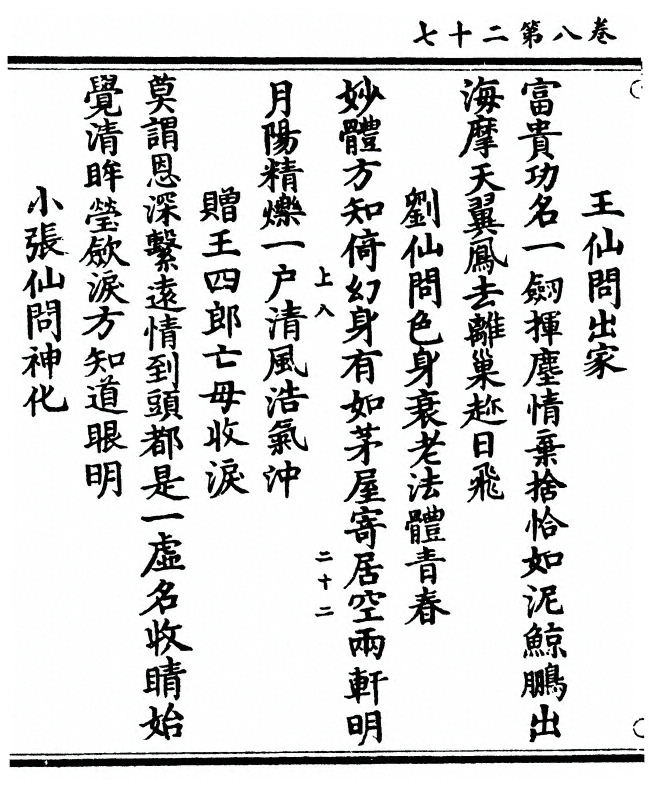 卷八第二十七
王仙問出家
富貴功名一劒揮塵情棄捨恰如泥鯨鵬出
海摩天翼鳳去離巢趂日飛
劉仙問色身衰老法體青春
妙體方知倚幻身有如茅屋寄居空兩軒明
上八
二十二
月陽精爍一户清風浩氣沖
贈王四郎亡母收淚
莫謂恩深繫遠情到頭都是一虛名收睛始
覺清眸瑩歛淚方知道眼明
小張仙問神化